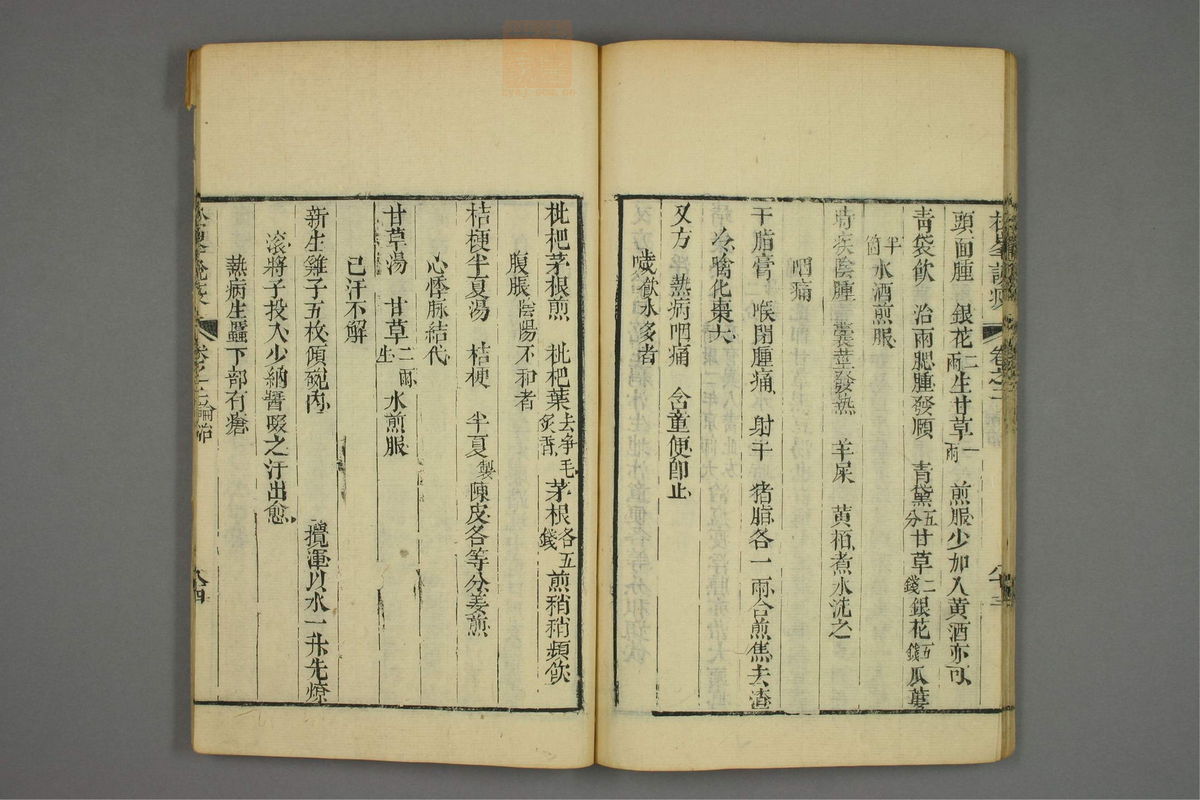 頭面腫　銀花二兩生甘草一兩　煎服少加入黃酒亦可
靑袋飲　治兩腮腫發頤　青黛五分甘草二錢銀花五錢瓜蔞
半箇水酒煎服
時疾陰腫囊莖發熱　羊屎　黃栢煮水洗之
咽痛
干脂膏　喉閉腫痛　射干　猪脂各一兩合煎焦去渣
冷噙化棗大
又方　熱病咽痛　含童便卽止
噦飲水多者
枇杷茅根煎　枇杷葉去凈毛炙香茅根各五錢煎稍稍頻飲
腹脹陰陽不和者
桔梗半夏湯　桔梗　半夏製陳皮各等分姜煎
心悸脉結代
甘草湯　甘草二兩生水煎服
已汗不解
新生雞子五枚傾碗內　攪渾以水一升先燎
滾將子投入少納醬啜之汗出愈
熱病生䘌下部有瘡
松峯說疫　卷之二　論治　八十四